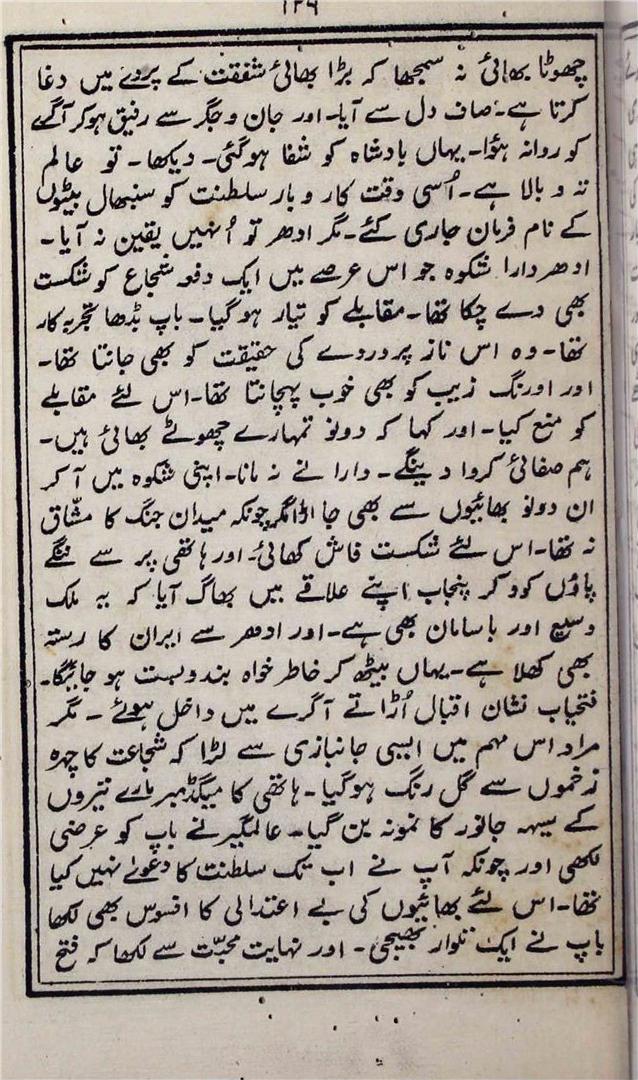 ۱۲۶
چھوٹا بھائی نہ سمجھا کہ بڑا بھائی شفقت کے پردے میں دغا
کرتا ہے۔ صاف دل سے آیا۔ اور جان و جگر سے رفیق ہوکر آگے
کو روانہ ہؤا۔ یہاں بادشاہ کو شفا ہوگئی۔ دیکھا۔ تو عالم
تہ و بالا ہے۔ اُسی وقت کار و بار سلطنت کو سنبھال بیٹوں
کے نام فرمان جاری کئے۔ مگر ادھر تو اُنہیں یقین نہ آیا۔
ادھر دارا شکوہ جو اس عرصے میں ایک دفعہ شجاع کو شکست
بھی دے چکا تھا۔ مقابلے کو تیار ہوگیا۔ باپ بڈھا تجربہ کار
تھا۔ وہ اس ناز پروردے کی حقیقت کو بھی جانتا تھا۔
اور اورنگ زیب کو بھی خوب پہچانتا تھا۔ اس لئے مقابلے
کو منع کیا۔ اور کہا کہ دونو تمہارے چھوٹے بھائی ہیں۔
ہم صفائی کروا دینگے۔ دارا نے نہ مانا۔ اپنی شکوہ میں آ کر
ان دونو بھائیوں سے بھی جا اڑا مگر چونکہ میدان جنگ کا مشّاق
نہ تھا۔ اس لئے شکست فاش کھائی۔ اور ہاتھی پر سے ننگے
پاؤں کود کر پنجاب اپنے علاقے میں بھاگ آیا کہ یہ ملک
وسیع اور باسامان بھی ہے۔ اور ادھر سے ایران کا رستہ
بھی کھلا ہے۔ یہاں بیٹھ کر خاطر خواہ بندوبست ہو جائیگا۔
فتحیاب نشان اقبال اُڑاتے آگرے میں داخل ہوئے۔ مگر
مراد اس مہم میں ایسی جانبازی سے لڑا کہ شجاعت کا چہرہ
زخموں سے گل رنگ ہوگیا۔ ہاتھی کا میگڈمبر مارے تیروں
کے سیہہ جانور کا نمونہ بن گیا۔ عالمگیر نے باپ کو عرضی
لکھی اور چونکہ آپ نے اب تک سلطنت کا دعوےٰ نہیں کیا
تھا۔ اس لئے بھائیوں کی بے اعتدالی کا افسوس بھی لکھا
باپ نے ایک تلوار بھیجی۔ اور نہایت محبّت سے لکھا کہ فتح